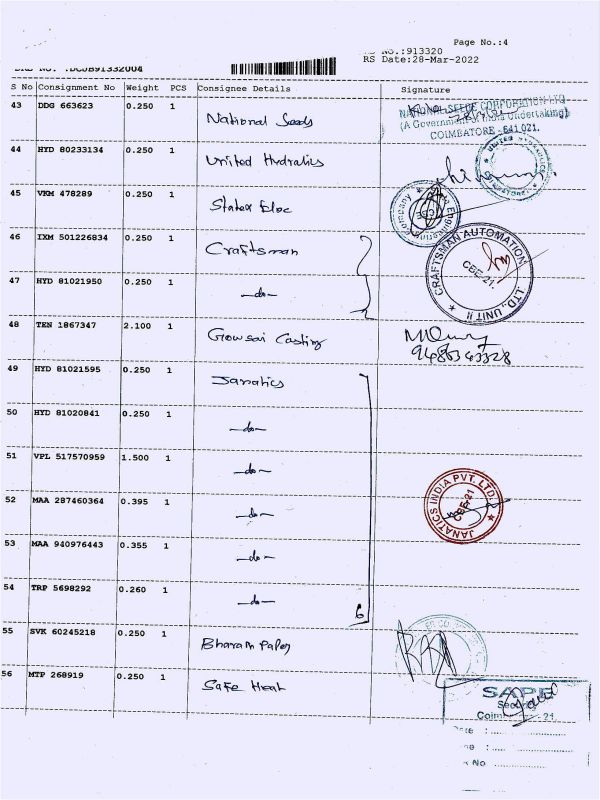 Page No.:4
NO.:913320
RS Date:28-Mar-2022
DRS NO. :DCJB91332004
S No Consignment No Weight PCS Consignee Details Signature
43 DDG 663623 0.250 1 National Seeds
NATIONAL SEEDS CORPORATION LTD
(A Government of India Undertaking)
COIMBATORE - 641 021.
44 HYD 80233134 0.250 1 United Hydralics
45 VKM 478289 0.250 1
Engineering Company
CBE
46 IXM 501226834 0.250 1 Craftsman
CRAFTSMAN AUTOMATION LTD., UNIT II
CBE-21.
47 HYD 81021950 0.250 1 -do-
48 TEN 1867347 2.100 1 Gowsai Casting
49 HYD 81021595 0.250 1 Janatics
50 HYD 81020841 0.250 1 -do-
51 VPL 517570959 1.500 1 -do-
52 MAA 287460364 0.395 1 -do-
JANATICS INDIA PVT. LTD.
CBE-21
53 MAA 940976443 0.355 1 -do-
54 TRP 5698292 0.260 1 -do- 6
55 SVK 60245218 0.250 1
56 MTP 268919 0.250 1 Safe Heat
SAPE
- 21.
No